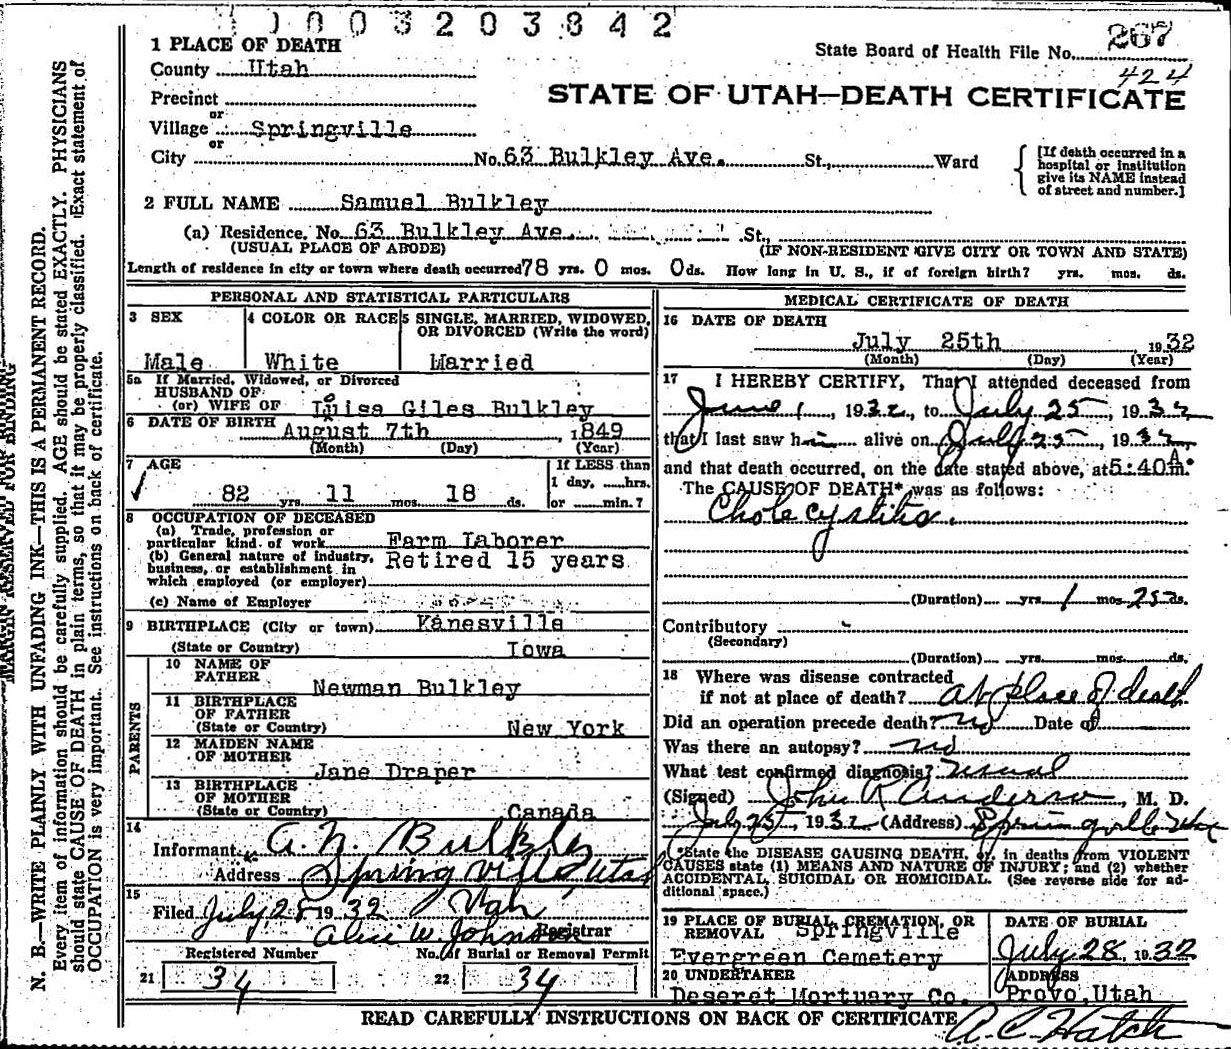 0003203842
State Board of Health File No. 267
424
1 PLACE OF DEATH
County Utah
STATE OF UTAH—DEATH CERTIFICATE
Precinct
or
Village Springville
or
City No. 63 Bulkley Ave. St., Ward
[If death occurred in a hospital or institution give its NAME instead of street and number.]
2 FULL NAME Samuel Bulkley
(a) Residence, No. 63 Bulkley Ave. St.,
(USUAL PLACE OF ABODE) (IF NON-RESIDENT GIVE CITY OR TOWN AND STATE)
Length of residence in city or town where death occurred 78 yrs. 0 mos. 0 ds. How long in U. S., if of foreign birth? yrs. mos. ds.
PERSONAL AND STATISTICAL PARTICULARS
3 SEX
Male
4 COLOR OR RACE
White
5 SINGLE, MARRIED, WIDOWED, OR DIVORCED (Write the word)
Married
5a If Married, Widowed, or Divorced
HUSBAND OF
(or) WIFE OF Luisa Giles Bulkley
6 DATE OF BIRTH August 7th, 1849
(Month) (Day) (Year)
7 AGE
82 yrs. 11 mos. 18 ds.
If LESS than
1 day, hrs.
or min.?
8 OCCUPATION OF DECEASED
(a) Trade, profession or
particular kind of work Farm Laborer
(b) General nature of industry,
business, or establishment in
which employed (or employer) Retired 15 years
(c) Name of Employer
9 BIRTHPLACE (City or town) Kanesville
(State or Country) Iowa
PARENTS
10 NAME OF
FATHER Newman Bulkley
11 BIRTHPLACE
OF FATHER
(State or Country) New York
12 MAIDEN NAME
OF MOTHER Jane Draper
13 BIRTHPLACE
OF MOTHER
(State or Country) Canada
14
Informant A. N. Bulkley
Address Springville Utah
15
Filed July 28 1932 Utah
Alice W. Johnson
Registrar
Registered Number No. of Burial or Removal Permit
21 34 22 34
MEDICAL CERTIFICATE OF DEATH
16 DATE OF DEATH
July 25th 1932
(Month) (Day) (Year)
17 I HEREBY CERTIFY, That I attended deceased from
June 1, 1932, to July 25, 1932
that I last saw him alive on July 25, 1932,
and that death occurred, on the date stated above, at 5:40 A.m.
The CAUSE OF DEATH* was as follows:
Cholecystitis.
(Duration) yrs. 1 mos. 25 ds.
Contributory
(Secondary)
(Duration) yrs. mos. ds.
18 Where was disease contracted
if not at place of death? at place of death
Did an operation precede death? no Date of
Was there an autopsy? no
What test confirmed diagnosis? usual
(Signed) John R Anderson, M. D.
July 25 1932 (Address) Springville Utah
*State the DISEASE CAUSING DEATH, or, in deaths from VIOLENT
CAUSES state (1) MEANS AND NATURE OF INJURY; and (2) whether
ACCIDENTAL, SUICIDAL OR HOMICIDAL. (See reverse side for ad-
ditional space.)
19 PLACE OF BURIAL, CREMATION, OR
REMOVAL Springville
Evergreen Cemetery
DATE OF BURIAL
July 28, 1932
20 UNDERTAKER
Deseret Mortuary Co.
ADDRESS
Provo, Utah
READ CAREFULLY INSTRUCTIONS ON BACK OF CERTIFICATE
A. C. Hatch
MARGIN RESERVED FOR BINDING
N. B.—WRITE PLAINLY WITH UNFADING INK—THIS IS A PERMANENT RECORD.
Every item of information should be carefully supplied. AGE should be stated EXACTLY. PHYSICIANS
should state CAUSE OF DEATH in plain terms, so that it may be properly classified. Exact statement of
OCCUPATION is very important. See instructions on back of certificate.